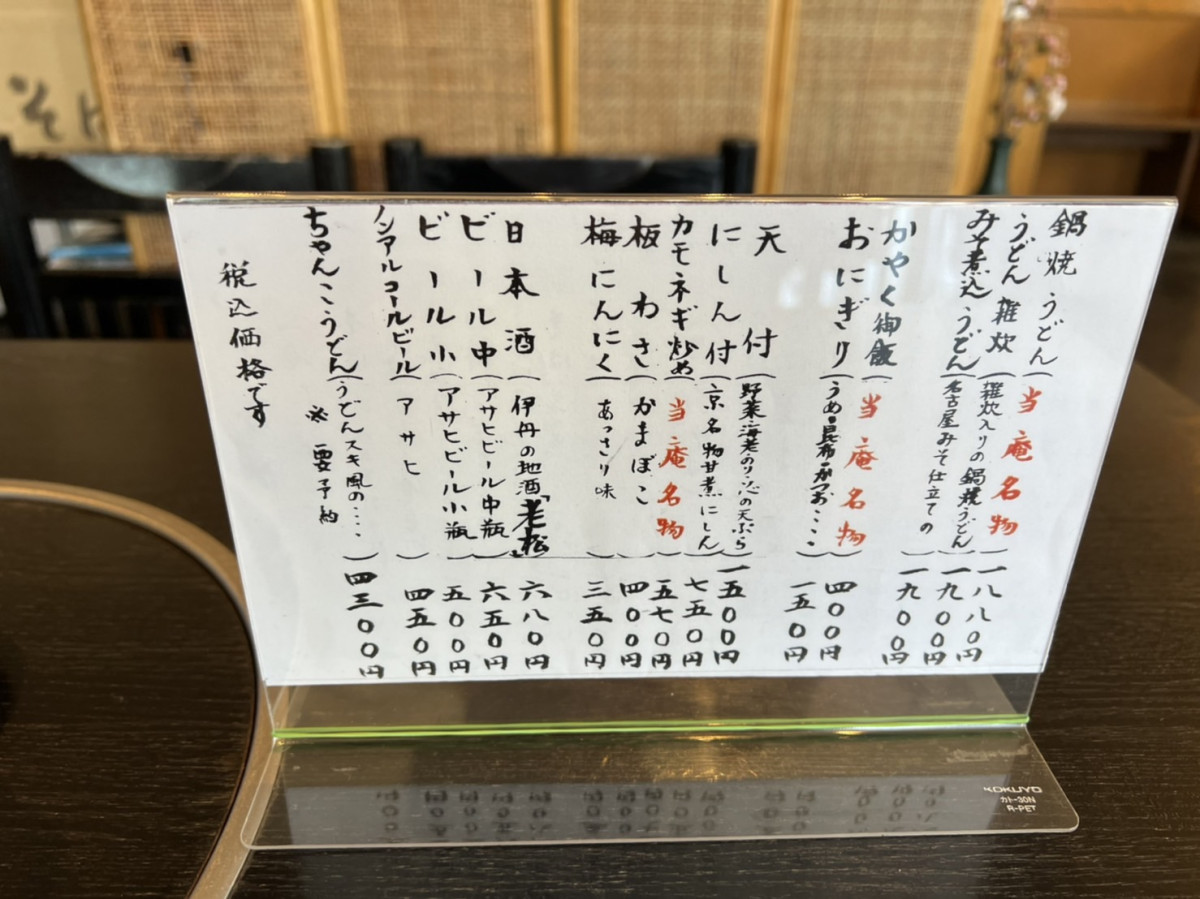 鍋焼うどん(当庵名物)一八八〇円
うどん雑炊(雑炊入りの鍋焼うどん)一九〇〇円
みそ煮込うどん(名古屋みそ仕立ての)一九〇〇円
かやく御飯(当庵名物)四〇〇円
おにぎり(うめ・昆布・かつお・・・・)一五〇円
天付(野菜・海老・のり・芯の天ぷら)一五〇〇円
にしん付(京名物甘煮にしん)七五〇円
カモネギ炒め(当庵名物)五七〇円
板わさ(かまぼこ)四〇〇円
梅にんにく(あっさり味)三五〇円
日本酒(伊丹の地酒「老松」)六八〇円
ビール中(アサヒビール中瓶)六五〇円
ビール小(アサヒビール小瓶)五〇〇円
ノンアルコールビール(アサヒ)四五〇円
ちゃんこうどん(うどんスキ風の・・・・)四三〇〇円
※要予約
税込価格です
KOKUYO
カト-30N
R-PET